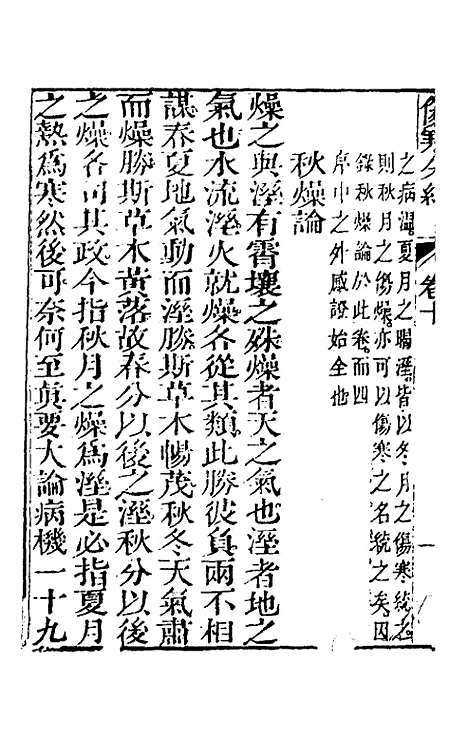 傷寒分經
卷十
一
之病濕夏月之暍溼皆以冬月之傷寒統之
則秋月之傷燥亦可以傷寒之名統之矣因
錄秋燥論於此卷而四
序中之外感證始全也
秋燥論
燥之與溼有霄壤之殊燥者天之氣也溼者地之
氣也水流溼火就燥各從其類此勝彼負兩不相
謀春夏地氣動而溼勝斯草木暢茂秋冬天氣肅
而燥勝斯草木黃落故春分以後之溼秋分以後
之燥各司其政今指秋月之燥爲溼是必指夏月
之熱爲寒然後可奈何至眞要大論病機一十九